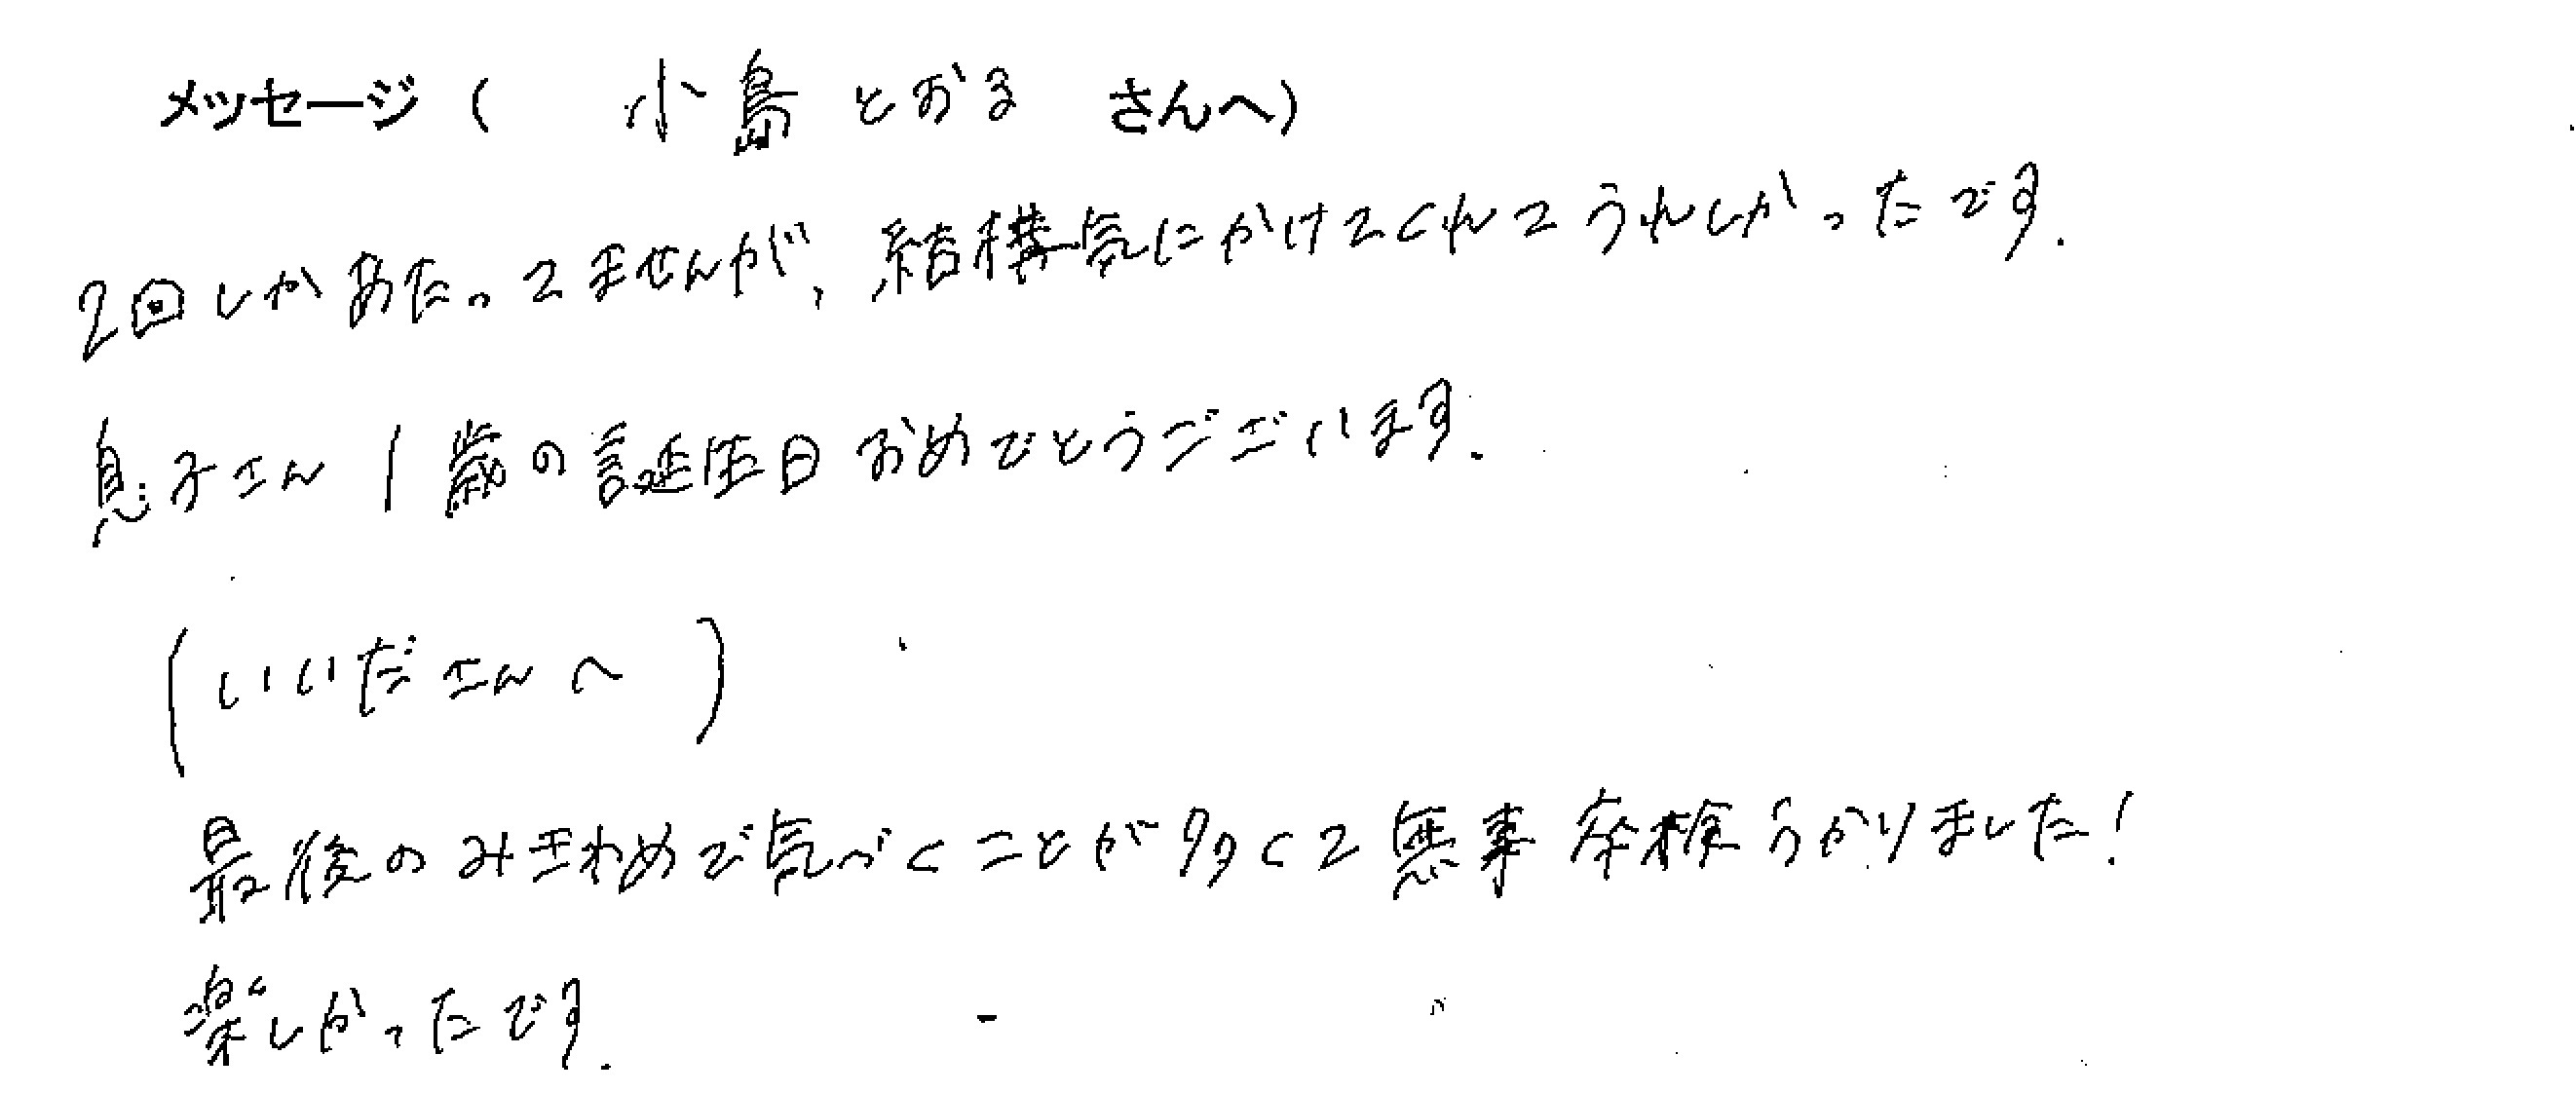 メッセージ（ 小島とおる さんへ）
2回しかあたってませんが、結構気にかけてくれてうれしかったです.
息子さん1歳の誕生日おめでとうございます.
(いいださんへ)
最後のみきわめで気づくことが多くて無事卒検うかりました!
楽しかったです.